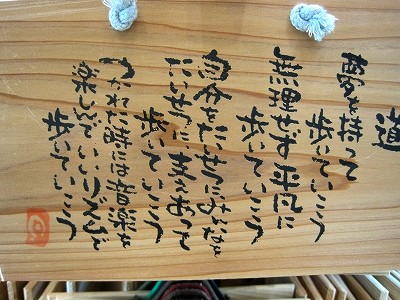 道
夢を持って
歩いていこう
無理せず平凡に
歩いていこう
自分をたいせつにみんなを
たいせつに支えあって
歩いていこう
つかれた時には音楽を
楽しんでいいリズムで
歩いていこう